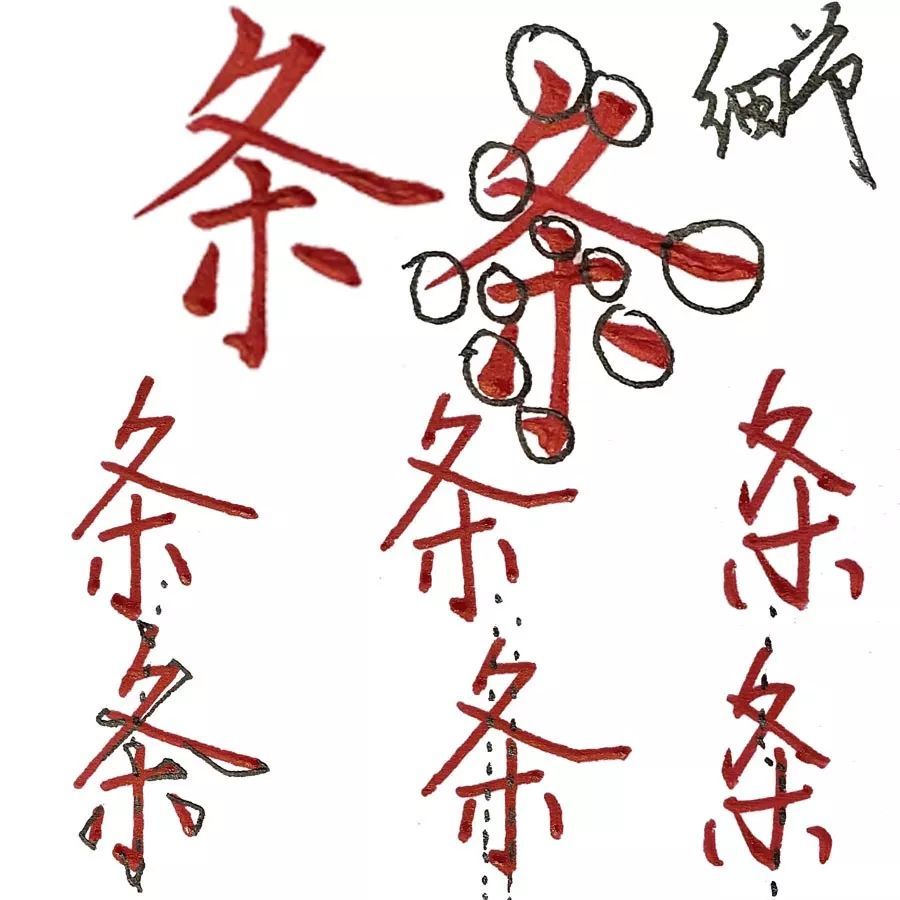 条 条 细节
条 条 条
条 条 条